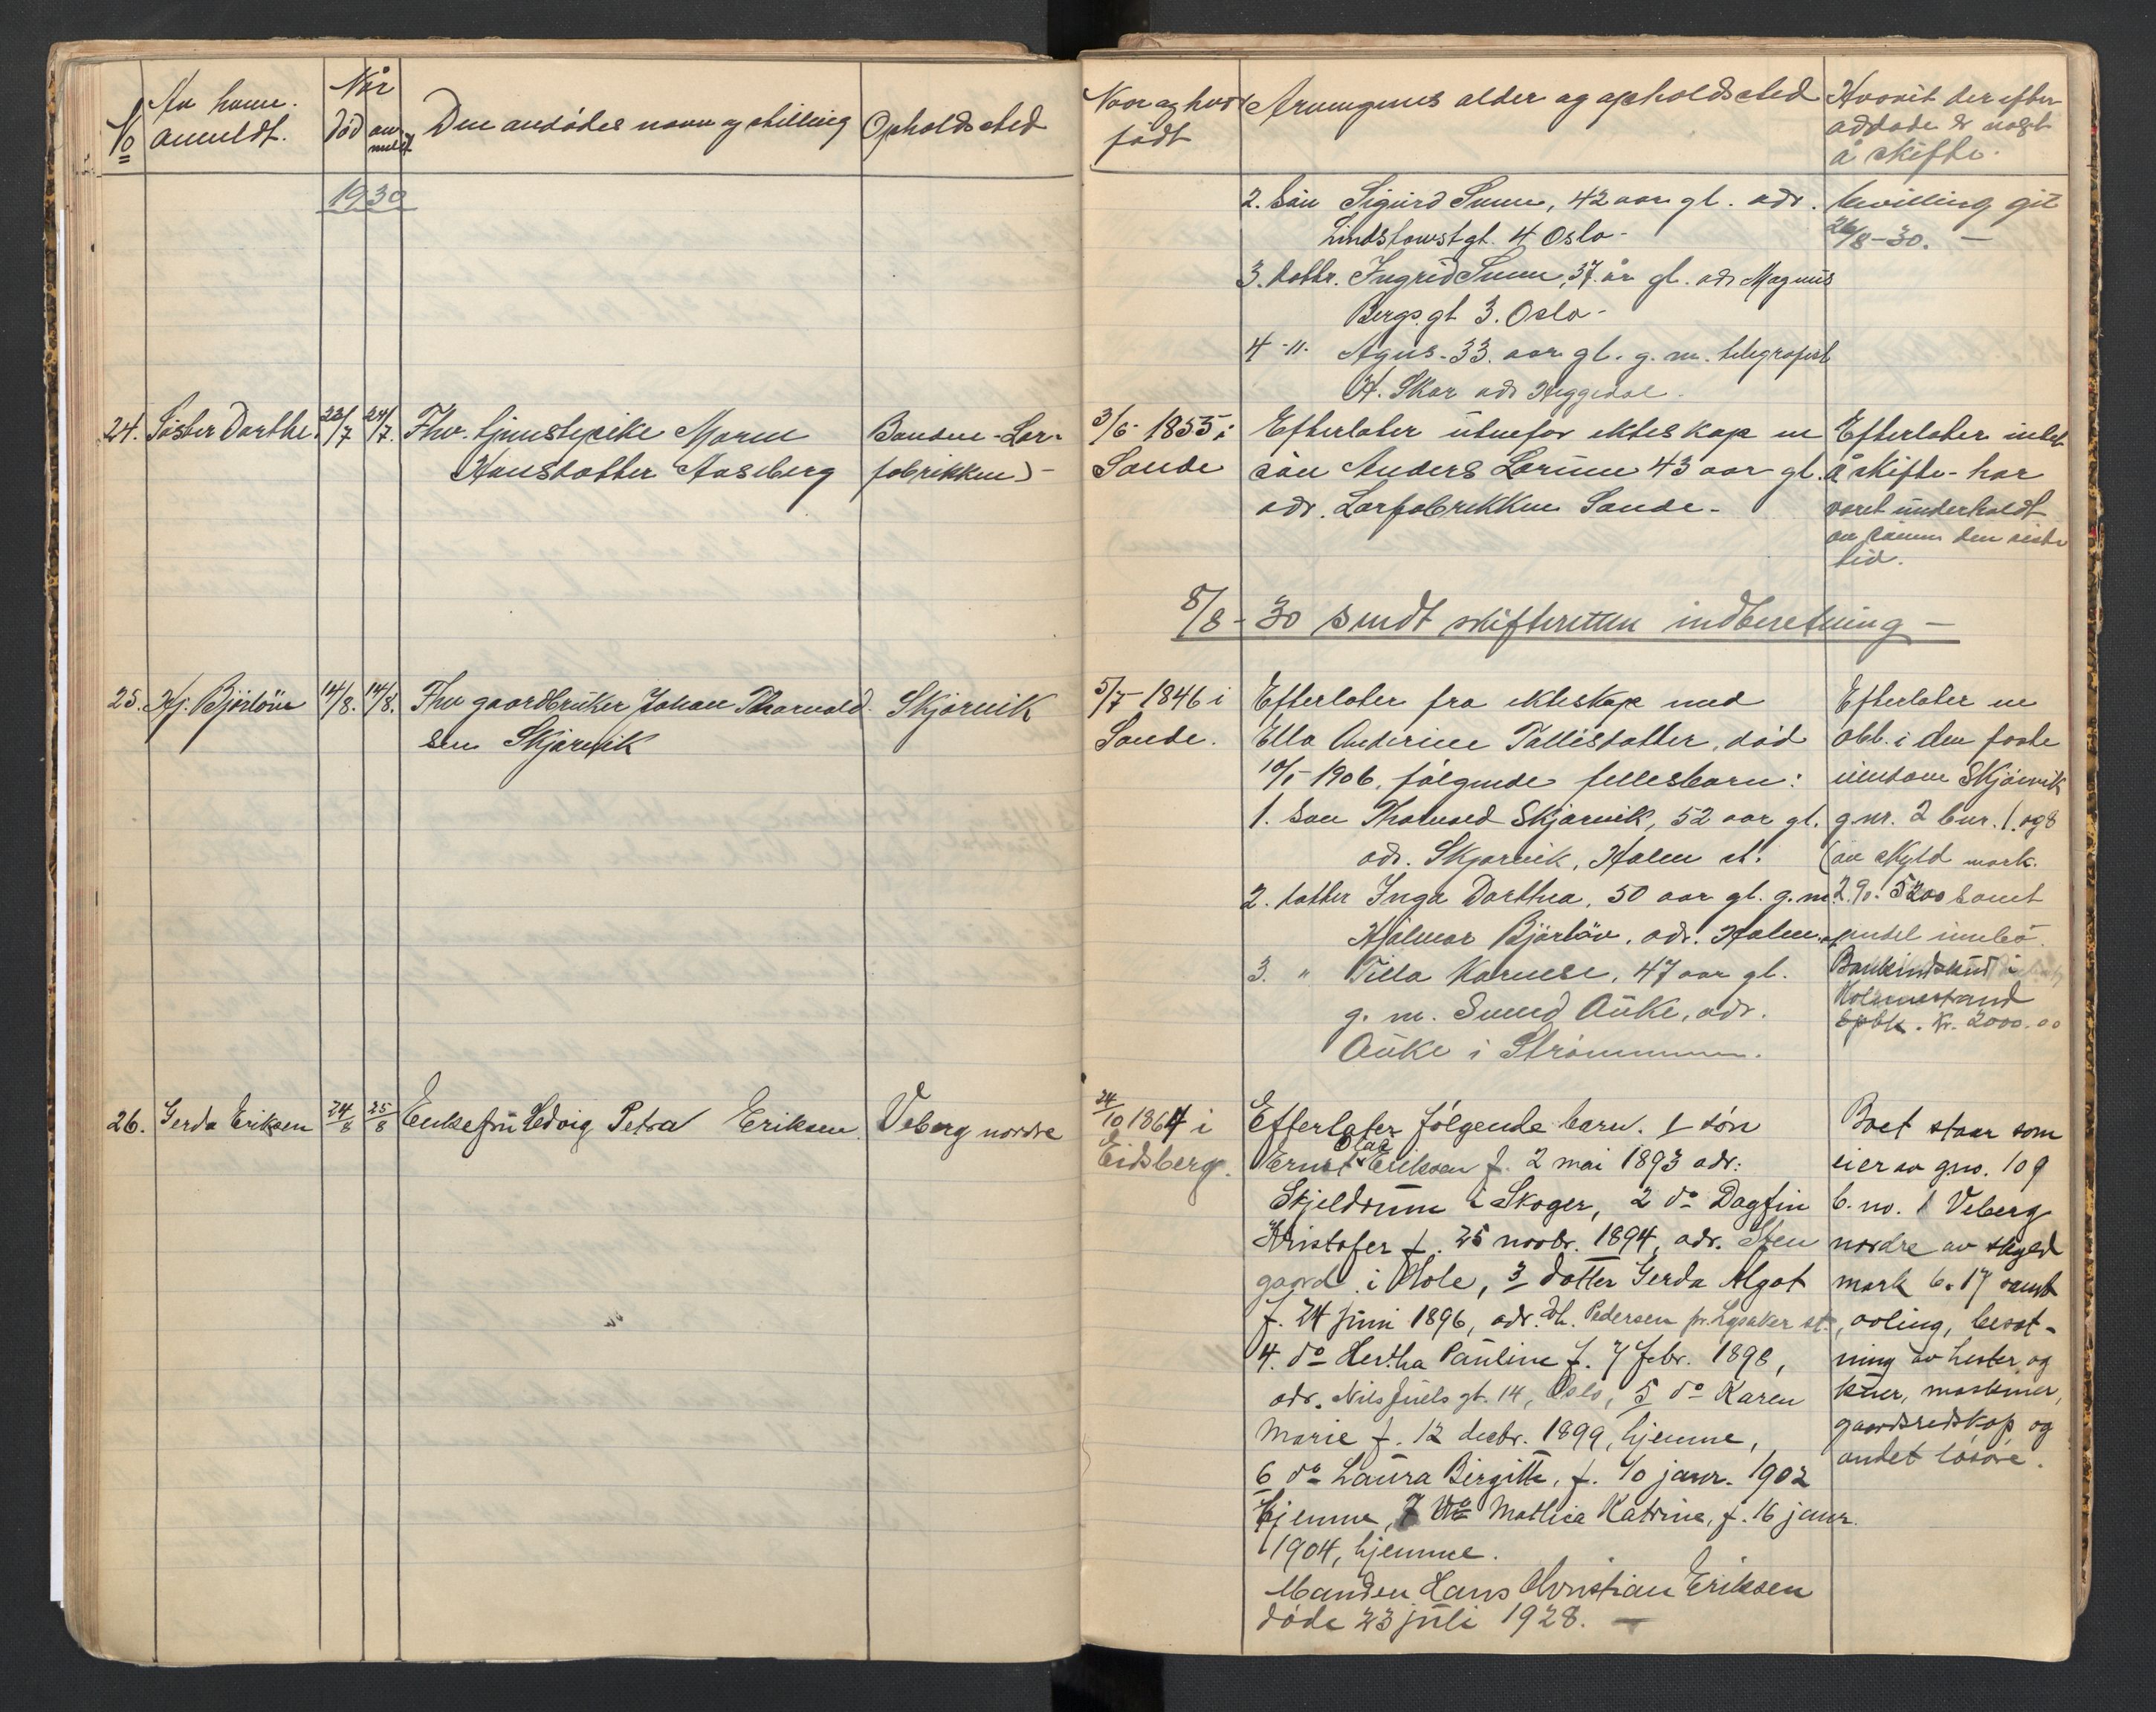 No
Av hvem
anmeldt.
Når
død
an-
meldt
Den avdødes navn og stilling
Opholdssted
Naar og hvor
født
Arvingenes alder og opholdssted
Hvorvidt der efter
avdøde er noget
å skifte.
1930
2. Søn Sigurd Sunn, 42 aar gl. adr.
Lindstowstgt. 4 Oslo.
3. Datter. Ingrid Sunn, 37 år gl. adr Magnus
Bergs gt 3. Oslo-
4 -"- Agnes. 33. aar gl. g. m. telegrafist
H. Skar adr Heggedal.
bevilling git
26/8-30. -
24. Søster Dorthe.
22/7
24/7.
Fhv. tjenestepike Maren
Hansdatter Aaseberg
Bansene-Lar-
fabrikken)-
3/6- 1855 i
Sande
Efterlater utenfor ekteskap en
søn Anders Larsen 43 aar gl.
adr. Larfabrikken Sande-
Efterlater intet
å skifte- har
været underholdt
av sønnen den siste
tid.
8/8-30 sendt skifteretten indberetning-
25. Hj. Bjørløv
14/8.
14/8.
Fhv gaardbruker Johan Thorvald-
sen Skjørvik
Skjørvik
5/7- 1846 i
Sande.
Efterlater fra ekteskap med
Ella Anderine Pallisdatter, død
10/5-1906, følgende fellesbarn:
1. Søn Thorvald Skjørvik, 52 aar gl.
adr. Skjørvik, Holm st.
2. datter Inga Dorthea, 50 aar gl. g.m.
Hjalmar Bjørløv, adr. Holm.
3. " Tilla Karnese, 47 aar gl.
g. m. Svend Auke, adr.
Auke i Strømmen.
Efterlater en
obl. i den faste
eiendom Skjørvik
g.nr. 2 bnr. 1. og 8
(av skyld mark.
2.90. 5200 samt
endel innbo.
Bankindskud i
Holmestrand
spbk. kr. 2000.00
26. Gerda Eriksen
24/8
25/8
Enkefru Hedvig Petra Eriksen
Veberg nordre
24/10 1864 i
Eidsberg.
Efterlater følgende barn. 1 søn
Ernst Olaf Eriksen f. 2 mai 1893 adr:
Skjeldrum i Skoger, 2 do Dagfin
Kristofer f. 25 novbr. 1894, adr. Sten
gaard i Hole, 3 datter Gerda Algot
f. 24 juni 1896, adr. Th. Pedersen pr. Lysaker st.
4. do Hertha Pauline f. 7 febr. 1898,
adr. Nils Juels gt. 14, Oslo, 5 do Karen
Marie f. 12 decbr. 1899, hjemme,
6 do Laura Birgitte, f. 10 janr. 1902
hjemme, 7 do Mathea Katrine, f. 16 janr.
1904, hjemme.
Manden Hans Christian Eriksen
døde 23 juli 1928. -
Boet staar som
eier av g.no. 109
b. no. 1 Veberg
nordre av skyld
mark 6.17 samt
avling, besæt-
ning av hester og
kuer, maskiner,
gaardsredskap og
andet løsøre.